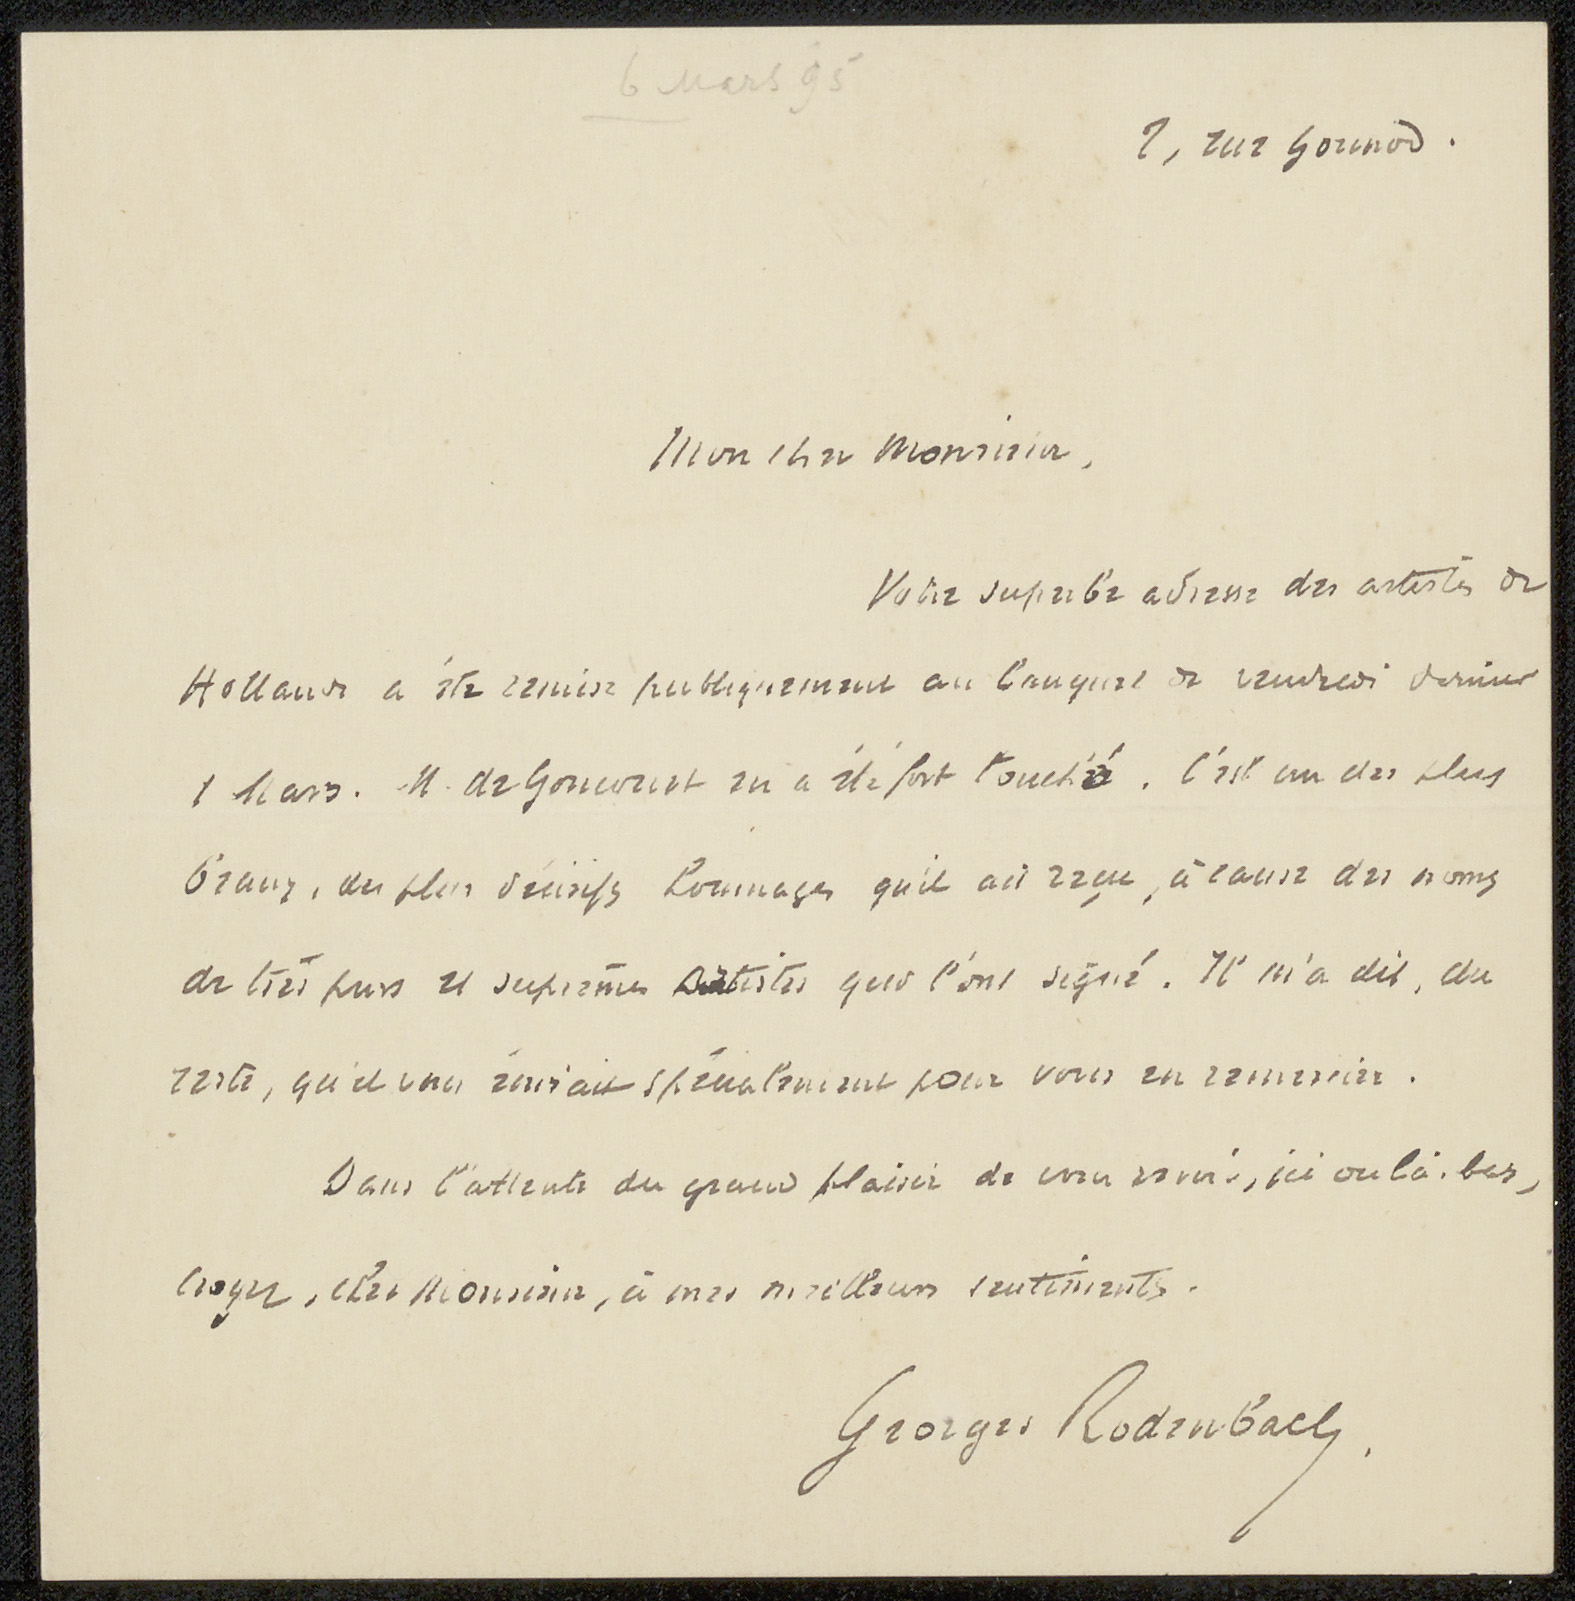 6 Mars 95
2, rue Gounod.
Mon cher Monsieur,
Votre superbe adresse des artistes de
Hollande a été remise publiquement au banquet de vendredi dernier
1 Mars. M. de Goncourt en a été fort touché. C'est un des plus
beaux, des plus décisifs hommages qu'il ait reçu, à cause des noms
de très purs et suprêmes artistes qui l'ont signé. Il m'a dit, du
reste, qu'il vous écrivait spécialement pour vous en remercier.
Dans l'attente du grand plaisir de vous revoir, ici ou là-bas,
croyez, cher Monsieur, à mes meilleurs sentiments.
Georges Rodenbach.